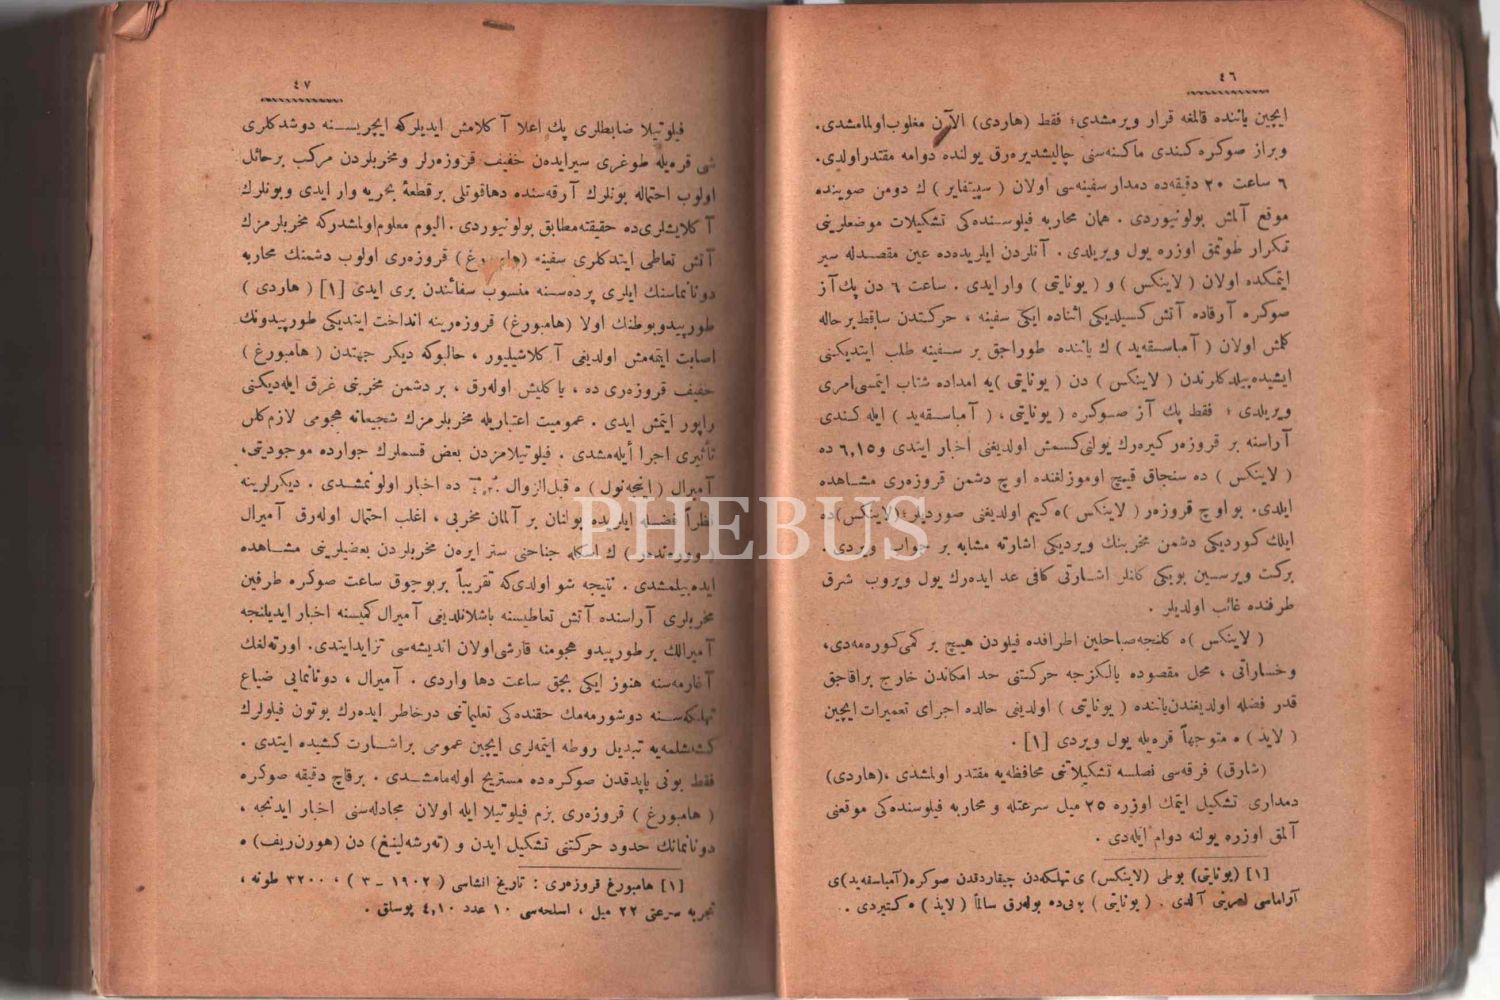 ٤٦
ایچین یاننده قالمغه قرار ویرمشدی؛ فقط (هاردی) الآن مغلوب اولمامشدی.
وبراز صوكره كندی ماكنه‌سنی چالیشدیره‌رق یولنده دوامه مقتدر اولدی.
٦ ساعت ٢٠ دقیقه‌ده دمدار سفینه‌سی اولان ( سپیتفایر ) ك دومن صوینده
موقع آلمش بولونیوردی . همان محاربه فیلوسنده‌كی تشكیلات موضعلرینی
تكرار طوتمق اوزره یول ویریلدی . آنلردن ایلریده‌ده عین مقصدله سیر
ایتمكده اولان ( لاینكس ) و ( یونایتی ) وار ایدی . ساعت ٦ دن پك آز
صوكره آرقاده آتش كسیلدیكی اثناده ایكی سفینه ، حركتدن ساقط برحاله
كلمش اولان ( آمباسقه‌ید ) ك یاننده طوراجق بر سفینه طلب ایتدیكنی
ایشیده‌بیلدكلرندن ( لاینكس ) دن ( یونایتی )یه امداده شتاب ایتمسی امری
ویریلدی ؛ فقط پك آز صوكره ( یونایتی ، ( آمباسقه‌ید ) ایله كندی
آراسنه بر قروزه‌ر كیره‌رك یولنی كسمش اولدیغنی اخبار ایتدی و ٦,١٥ ده
( لاینكس ) ده سنجاق قیچ اوموزلغنده اوچ دشمن قروزه‌ری مشاهده
ایلدی. بو اوچ قروزه‌ر ( لاینكس )ه كیم اولدیغنی صوردیلر؛ (لاینكس)ده
ایلك كوردیكی دشمن مخربنك ویردیكی اشارته مشابه بر جواب ویردی .
بركت ویرسین بویكی كانلر اشارتی كافی عد ایده‌رك یول ویروب شرق
طرفنده غائب اولدیلر .
( لاینكس )ه كلنجه صباحلین اطرافده فیلودن هیچ بر كمی كوره‌مه‌دی،
وخساراتی ، محل مقصوده یالكزجه حركتنی حد امكاندن خارج براقاجق
قدر فضله اولدیغندن یاننده ( یونایتی ) اولدیغی حالده اجرای تعمیرات ایچین
( لاید ) ه متوجهاً قره‌یله یول ویردی [١] .
(شارق) فرقه‌سی فصلسه تشكیلاتنی محافظه‌یه مقتدر اولمشدی ،(هاردی)
دمداری تشكیل ایتمك اوزره ٢٥ میل سرعتله و محاربه فیلوسنده‌كی موقعنی
آلمق اوزره یولنه دوام ایله‌دی .
[١] (یونایتی) بوطی (لاینكس) ی تهلكه‌دن چیقاردقدن صوكره (آمباسقه‌ید)ی
آراماسی امرینی آلدی . ( یونایتی ) یه‌نی‌ده بوله‌رق سالماً ( لاید ) ه كتیردی .
٤٧
فیلوتیلا ضابطلری پك اعلا آ كلامش ایدیلركه ایچریسنه دوشدكلری
شی قره‌یله طوغری سیرایده‌ن خفیف قروزه‌رلر ومخربلردن مركب برحائل
اولوب احتماله بونلرك آرقه‌سنده دهاقوتلی برقطعهٔ بحریه وار ایدی وبونلرك
آ كلایشلری‌ده حقیقته مطابق بولونیوردی . الیوم معلوم اولمشدركه مخربلرمزك
آتش تعاطی ایتدكلری سفینه (هامبورغ) قروزه‌ری اولوب دشمنك محاربه
دونانماسنك ایلری پرده‌سنه منسوب سفائندن بری ایدی [١] ( هاردی )
طورپیدوبوطنك اولا (هامبورغ) قروزه‌رینه انداخت ایتدیكی طورپیدونك
اصابت ایتمه‌مش اولدیغی آ كلاشیلیور ، حالبوكه دیكر جهتدن ( هامبورغ )
خفیف قروزه‌ری ده ، یا كلیش اوله‌رق ، بر دشمن مخربنی غرق ایله‌دیكنی
راپور ایتمش ایدی . عمومیت اعتباریله مخربلرمزك شجیعانه هجومی لازم كلن
تأثیری اجرا أیله‌مشدی . فیلوتیلامزدن بعض قسملرك جوارده موجودیتی،
آمیرال ( انجه‌نول ) ه قبل‌الزوال ده اخبار اولونمشدی . دیكرلرینه
نظراً فضله ایلریده بولنان بر آلمان مخربی ، اغلب احتمال اوله‌رق آمیرال
ك اسكله جناحنی ستر ایره‌ن مخربلردن بعضیلرینی مشاهده
ایده‌بیلمشدی . نتیجه شو اولدی‌كه تقریباً بربوجوق ساعت صوكره طرفین
مخربلری آراسنده آتش تعاطیسنه باشلانلدیغی آمیرال كمیسنه اخبار ایدیلنجه
آمیرالك بر طورپیدو هجومنه قارشی اولان اندیشه‌سی تزاید ایتدی. اورته‌لغك
آغارمه‌سنه هنوز ایكی بچق ساعت دها واردی . آمیرال ، دونانمایی ضیاع
تهلكه‌سنه دوشورمه‌مك حقنده‌كی تعلیماتنی درخاطر ایده‌رك بوتون فیلولرك
كشلشلمه‌یه تبدیل روطه ایتمه‌لری ایچین عمومی براشارت كشیده ایتدی .
فقط بونی یاپدقدن صوكره‌ده مستریح اوله‌مامشدی . برقاچ دقیقه صوكره
( هامبورغ ) قروزه‌ری بزم فیلوتیلا ایله اولان مجادله‌سنی اخبار ایدنجه ،
دونانمانك حدود حركتنی تشكیل ایدن و (ته‌رشه‌لینغ) دن (هورن‌ریف) ه
[١] هامبورغ قروزه‌ری : تاریخ انشاسی ( ١٩٠٢ – ٣ ) ، ٣٢٠٠ طونه ،
تجربه سرعتی ٢٢ میل ، اسلحه‌سی ١٠ عدد ٤,١٠ پوسلق .
PHEBUS